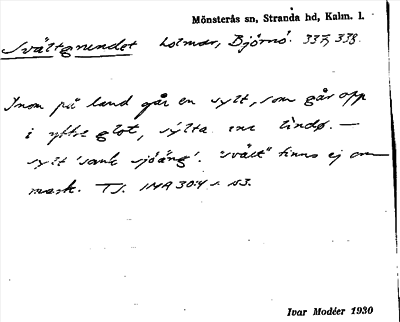 Mönsterås sn, Stranda hd, Kalm. l.
Svältgrundet holmar, Björnö. 337, 338.
Inom på land går en sylt, som går opp
i yttre glot, sylta inne lindø. —
sylt 'sank sjöäng'. "svält" finns ej om
mark. TJ. IMA 30:4 s. 153.
Ivar Modéer 1930